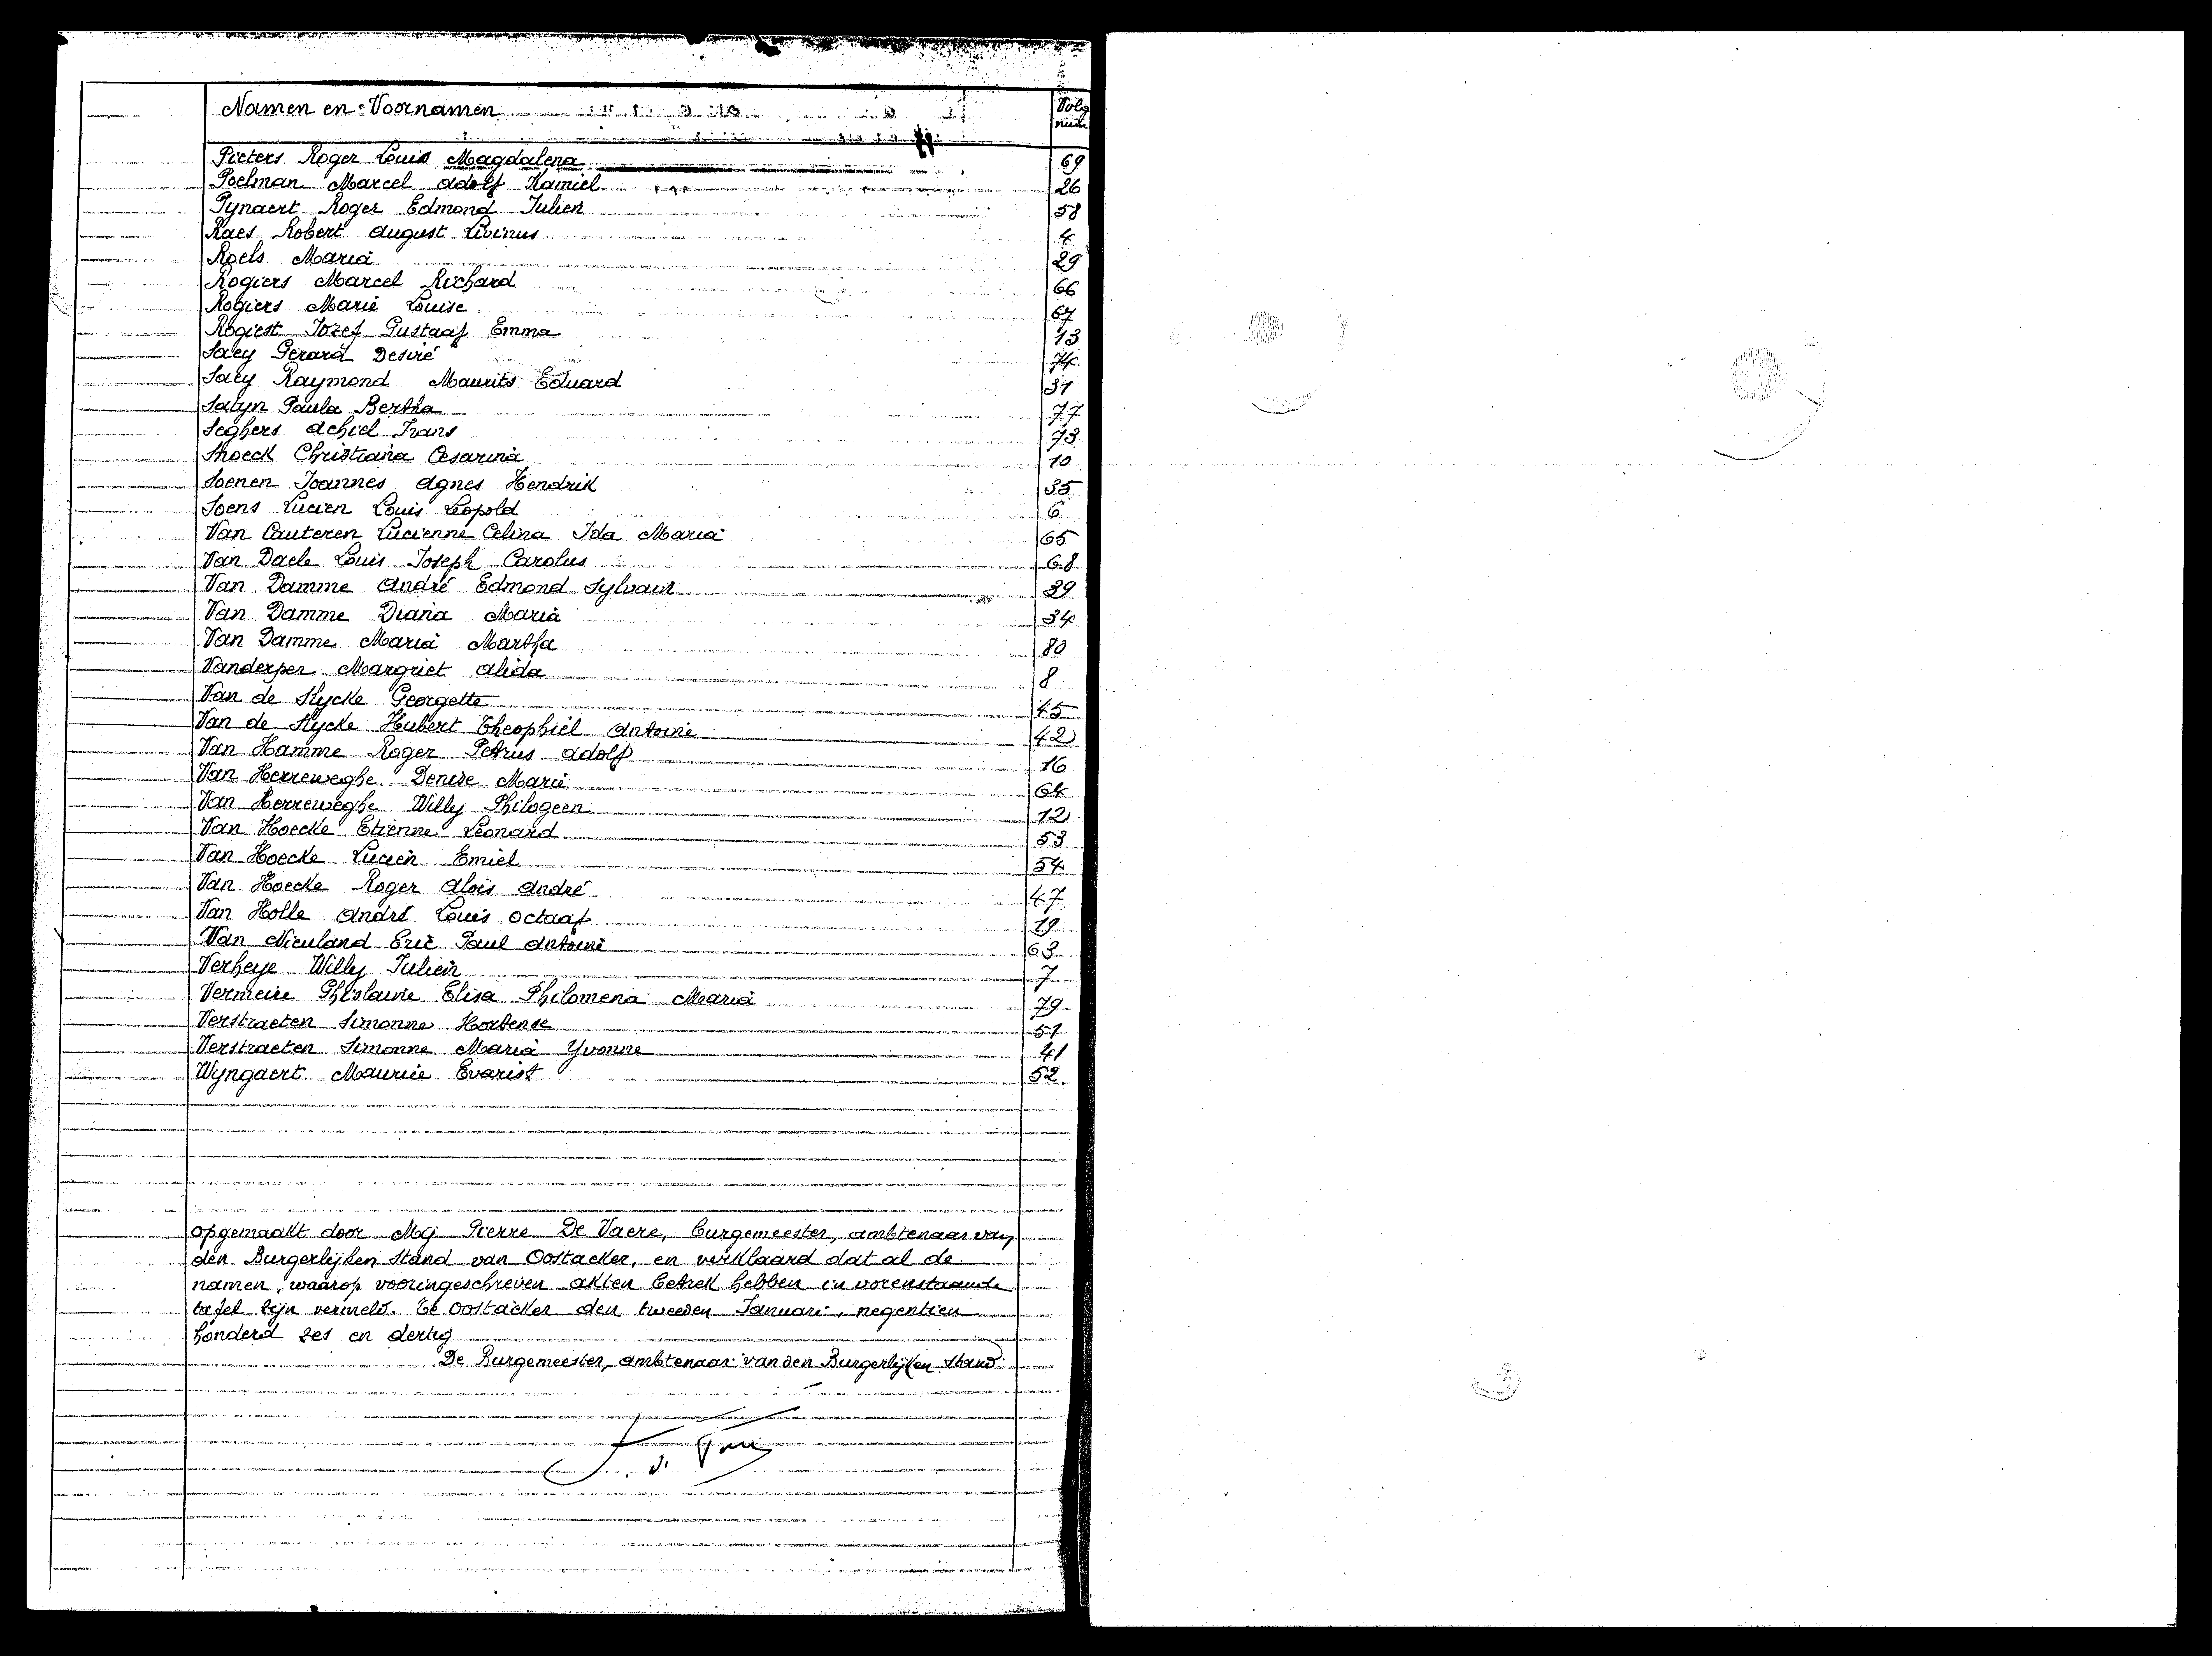 Namen en Voornamen Volg num
Pieters Roger Louis Magdalena 69
Poelman Marcel Adolf Kamiel 26
Pynaert Roger Edmond Julien 58
Raes Robert August Livinus 4
Roels Maria 29
Rogiers Marcel Richard 66
Rogiers Marie Louise 67
Rogiest Jozef Gustaaf Emma 13
Saey Gerard Desiré 74
Saey Raymond Maurits Eduard 31
Salyn Paula Bertha 77
Seghers Achiel Frans 73
Shoeck Christiana Cesarina 10
Soenen Joannes Agnes Hendrik 35
Soens Lucien Louis Leopold 6
Van Cauteren Lucienne Celina Ida Maria 65
Van Daele Louis Joseph Carolus 68
Van Damme André Edmond Sylvain 39
Van Damme Diana Maria 34
Van Damme Maria Martha 80
Vanderper Margriet Alida 8
Van de Slycke Georgette 45
Van de Slycke Hubert Theophiel Antoine 42
Van Hamme Roger Petrus Adolf 16
Van Herreweghe Denise Marie 64
Van Herreweghe Willy Philogeen 12
Van Hoecke Etienne Leonard 53
Van Hoecke Lucien Emiel 54
Van Hoecke Roger Aloïs André 47
Van Holle André Louis Octaaf 19
Van Nieuland Eric Paul Antoine 63
Verheye Willy Julien 7
Vermeire Ghislaine Elisa Philomena Maria 79
Verstraeten Simonne Hortense 51
Verstraeten Simonne Maria Yvonne 41
Wyngaert Maurice Evarist 52
Opgemaakt door Mij Pierre De Vaere, Burgemeester, ambtenaar van
den Burgerlijken Stand van Oostacker, en verklaard dat al de
namen, waarop vooringeschreven akten betrek hebben in vorenstaande
tafel zijn vermeld. Te Oostacker den tweeden Januari, negentien
honderd zes en dertig
De Burgemeester, ambtenaar van den Burgerlijken Stand